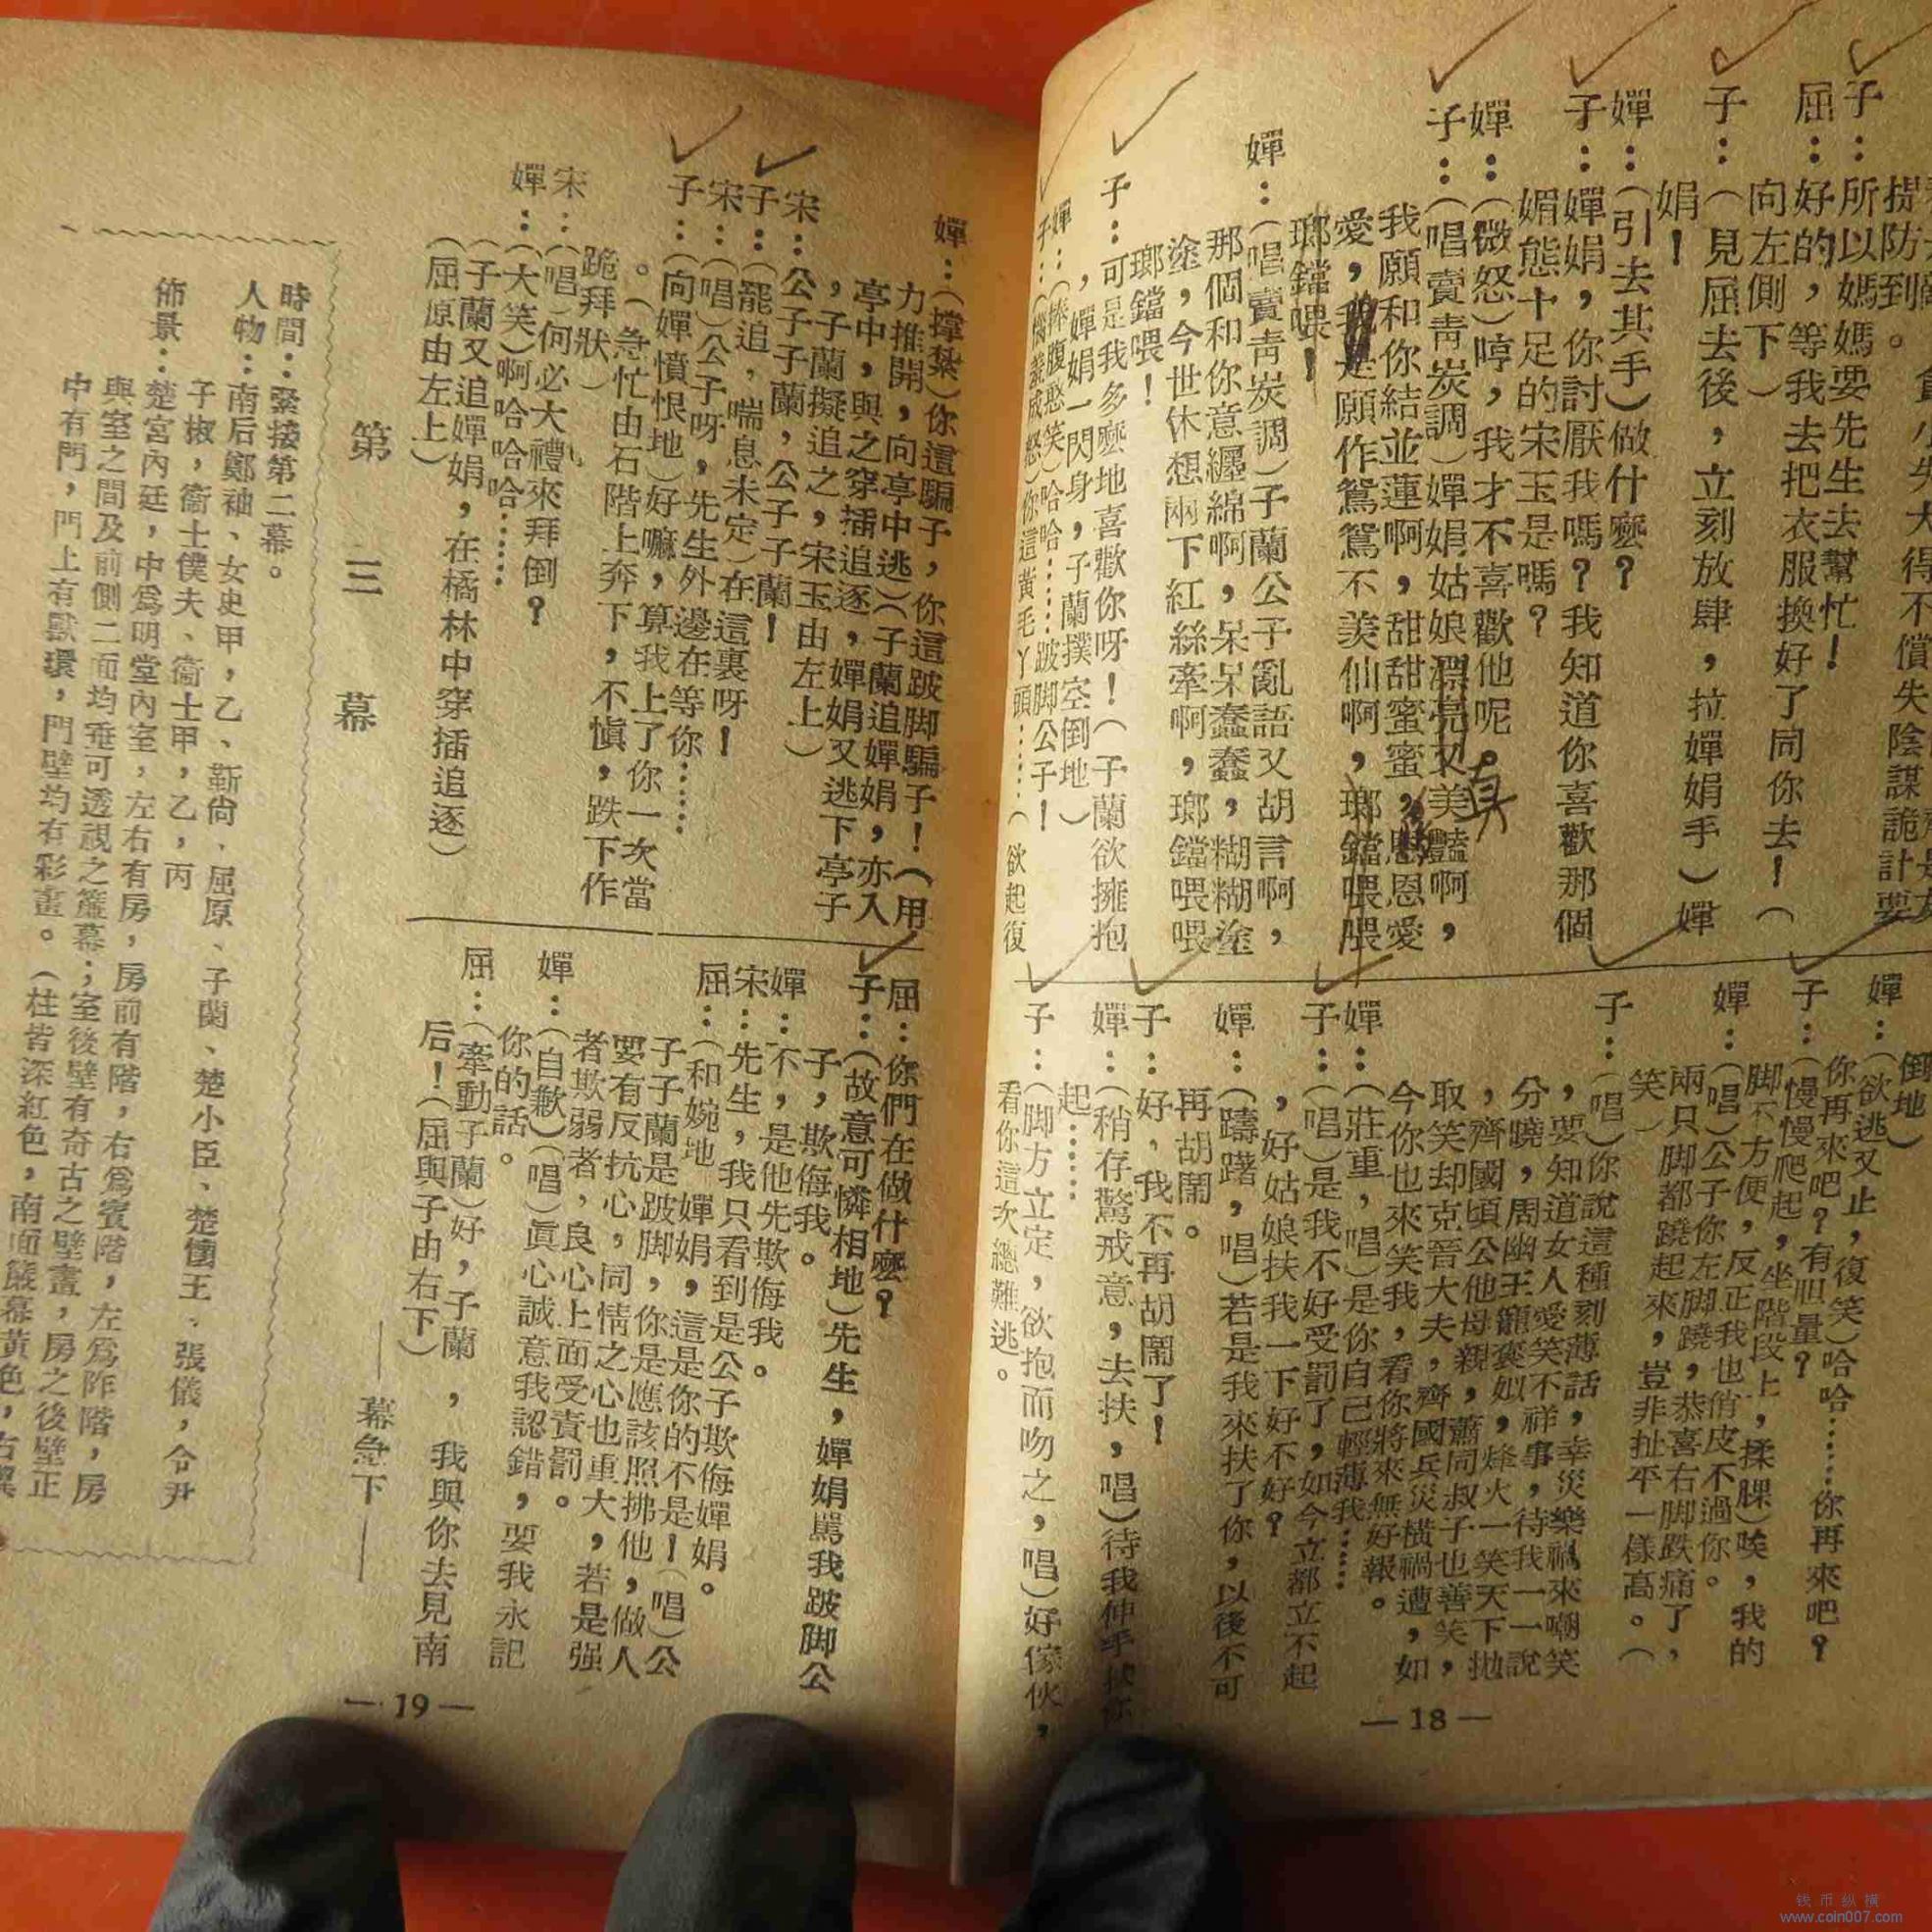 提防到。
子：所以媽媽要先生去幫忙！
屈：好的，等我去把衣服換好了同你去！（
向左側下）
子：（見屈去後，立刻放肆，拉嬋娟手）嬋
娟！
嬋：（引去其手）做什麽？
子：嬋娟，你討厭我嗎？我知道你喜歡那個
媚態十足的宋玉是嗎？
嬋：（微怒）哼，我才不喜歡他呢。
子：（唱賣青炭調）嬋娟姑娘漂亮又美豔啊，
真
我願和你結並蓮啊，甜甜蜜蜜，恩恩愛
愛，我是願作鴛鴦不羡仙啊，瑯鐺喂喂
瑯鐺喂！
嬋：（唱賣青炭調）子蘭公子亂語又胡言啊，
那個和你意纏綿啊，呆呆蠢蠢，糊糊塗
塗，今世休想兩下紅絲牽啊，瑯鐺喂喂
瑯鐺喂！
子：可是我多麽地喜歡你呀！（子蘭欲擁抱
，嬋娟一閃身，子蘭撲空倒地）
嬋：（捧腹憨笑）哈哈……跛脚公子！
子：（惱羞成怒）你這黃毛丫頭……（欲起復
倒地）
嬋：（欲逃又止，復笑）哈哈……你再來吧？
你再來吧？有胆量？
子：（慢慢爬起，坐階段上，揉腂）唉，我的
脚不方便，反正我也俏皮不過你。
嬋：（唱）公子你左脚蹺，恭喜右脚跌痛了，
兩只脚都蹺起來，豈非扯平一樣高。（
笑）
子：（唱）你說這種刻薄話，幸災樂禍來嘲笑
，要知道女人愛笑不祥事，待我一一說
分曉，周幽王寵褒姒，烽火一笑天下抛
，齊國頃公他母親，蕭同叔子也善笑，
取笑却克晉大夫，齊國兵災橫禍遭，如
今你也來笑我，看你將來無好報。
嬋：（莊重，唱）是你自己輕薄我……
子：（唱）是我不好受罰了，如今立都立不起
，好姑娘扶我一下好不好？
嬋：（躊躇，唱）若是我來扶了你，以後不可
再胡鬧。
子：好，我不再胡鬧了！
嬋：（稍存驚戒意，去扶，唱）待我伸手扶你
起……
子：（脚方立定，欲抱而吻之，唱）好傢伙，
看你這次總難逃。
—18—
嬋：（撑紮）你這騙子，你這跛脚騙子！（用
力推開，向亭中逃）（子蘭追嬋娟，亦入
亭中，與之穿插追逐，嬋娟又逃下亭子
，子蘭擬追之，宋玉由左上）
宋：公子子蘭，公子子蘭！
子：（罷追，喘息未定）在這裏呀！
宋：（唱）公子呀，先生外邊在等你……
子：（向嬋憤恨地）好嘛，算我上了你一次當
。（急忙由石階上奔下，不慎，跌下作
跪拜狀）
宋：（唱）何必大禮來拜倒？
嬋：（大笑）啊哈哈哈……
（子蘭又追嬋娟，在橘林中穿插追逐）
（屈原由左上）
屈：你們在做什麽？
子：（故意可憐相地）先生，嬋娟罵我跛脚公
子，欺侮我。
嬋：不，是他先欺侮我。
宋：先生，我只看到是公子欺侮嬋娟。
屈：（和婉地　嬋娟，這是你的不是！（唱）公
子子蘭是跛脚，你是應該照拂他，做人
要有反抗心，同情之心也重大，若是强
者欺弱者，良心上面受責罰。
嬋：（自歉）（唱）眞心誠意我認錯，要我永記
你的話。
屈：（牽動子蘭）好，子蘭，我與你去見南
后！（屈與子由右下）
——幕急下——
第三幕
時間：緊接第二幕。
人物：南后鄭袖、女史甲，乙、靳尙、屈原、子蘭、楚小臣、楚懷王、張儀，令尹
子椒，衞士僕夫、衞士甲，乙，丙
佈景：楚宮內廷，中爲明堂內室，左右有房，房前有階，右爲賓階，左爲阼階，房
與室之間及前側二面均垂可透視之簾幕；室後壁有奇古之壁畫，房之後壁正
中有門，門上有獸環，門壁均有彩畫。（柱皆深紅色，南面簾幕黃色，
—19—
钱币纵横
www.coin007.com